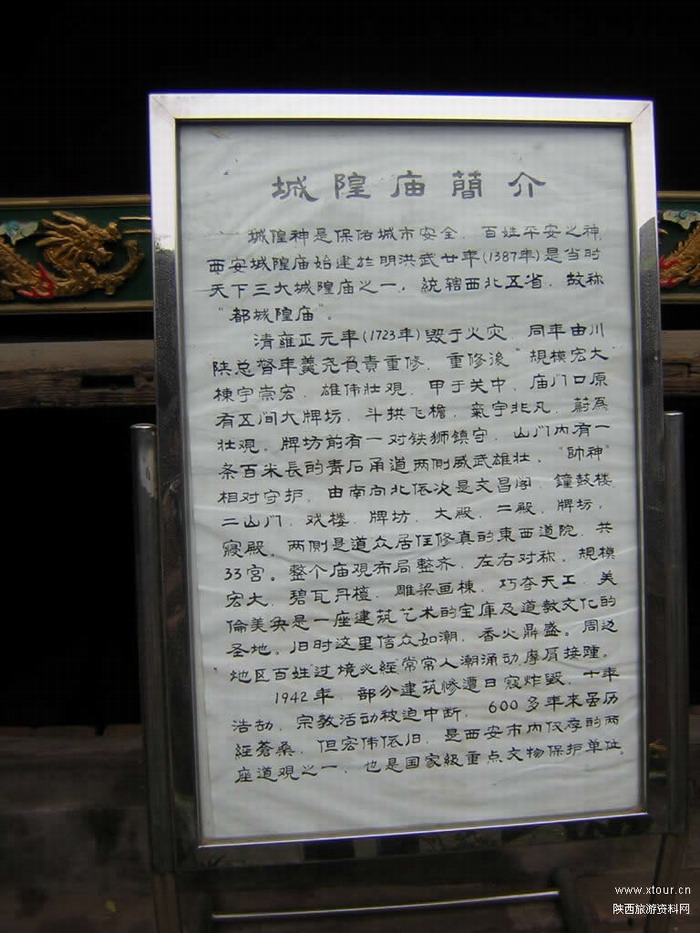 城隍庙簡介
城隍神是保佑城市安全、百姓平安之神,
西安城隍庙始建於明洪武廿年(1387年)是当时
天下三大城隍庙之一,統辖西北五省,故称
“都城隍庙”。
清雍正元年(1723年)毁于火灾,同年由川
陕总督年羹尧負責重修,重修後“規模宏大”
棟宇崇宏,雄伟壮觀,甲于关中,庙门口原
有五间大牌坊,斗拱飞檐,氣宇非凡,蔚為
壮觀。牌坊前有一对铁狮鎮守,山门内有一
条百米長的青石甬道两側威武雄壮,“帥神”
相对守护,由南向北依次是文昌阁、鐘鼓楼、
二山门、戏楼、牌坊、大殿、二殿、牌坊、
寢殿。两側是道众居住修真的東西道院,共
33宮。整个庙观布局整齐,左右对称,規模
宏大,碧瓦丹楹,雕梁画棟,巧夺天工,美
倫美奂是一座建筑艺术的宝庫及道教文化的
圣地。旧时这里信众如潮,香火鼎盛。周边
地区百姓过境必經常常人潮涌动摩肩接踵。
1942年,部分建筑惨遭日寇炸毁,十年
浩劫,宗教活动被迫中断,600多年来虽历
經蒼桑,但宏伟依旧,是西安市内仅存的两
座道觀之一,也是国家級重点文物保护单位。
www.xtour.cn
陕西旅游资料网